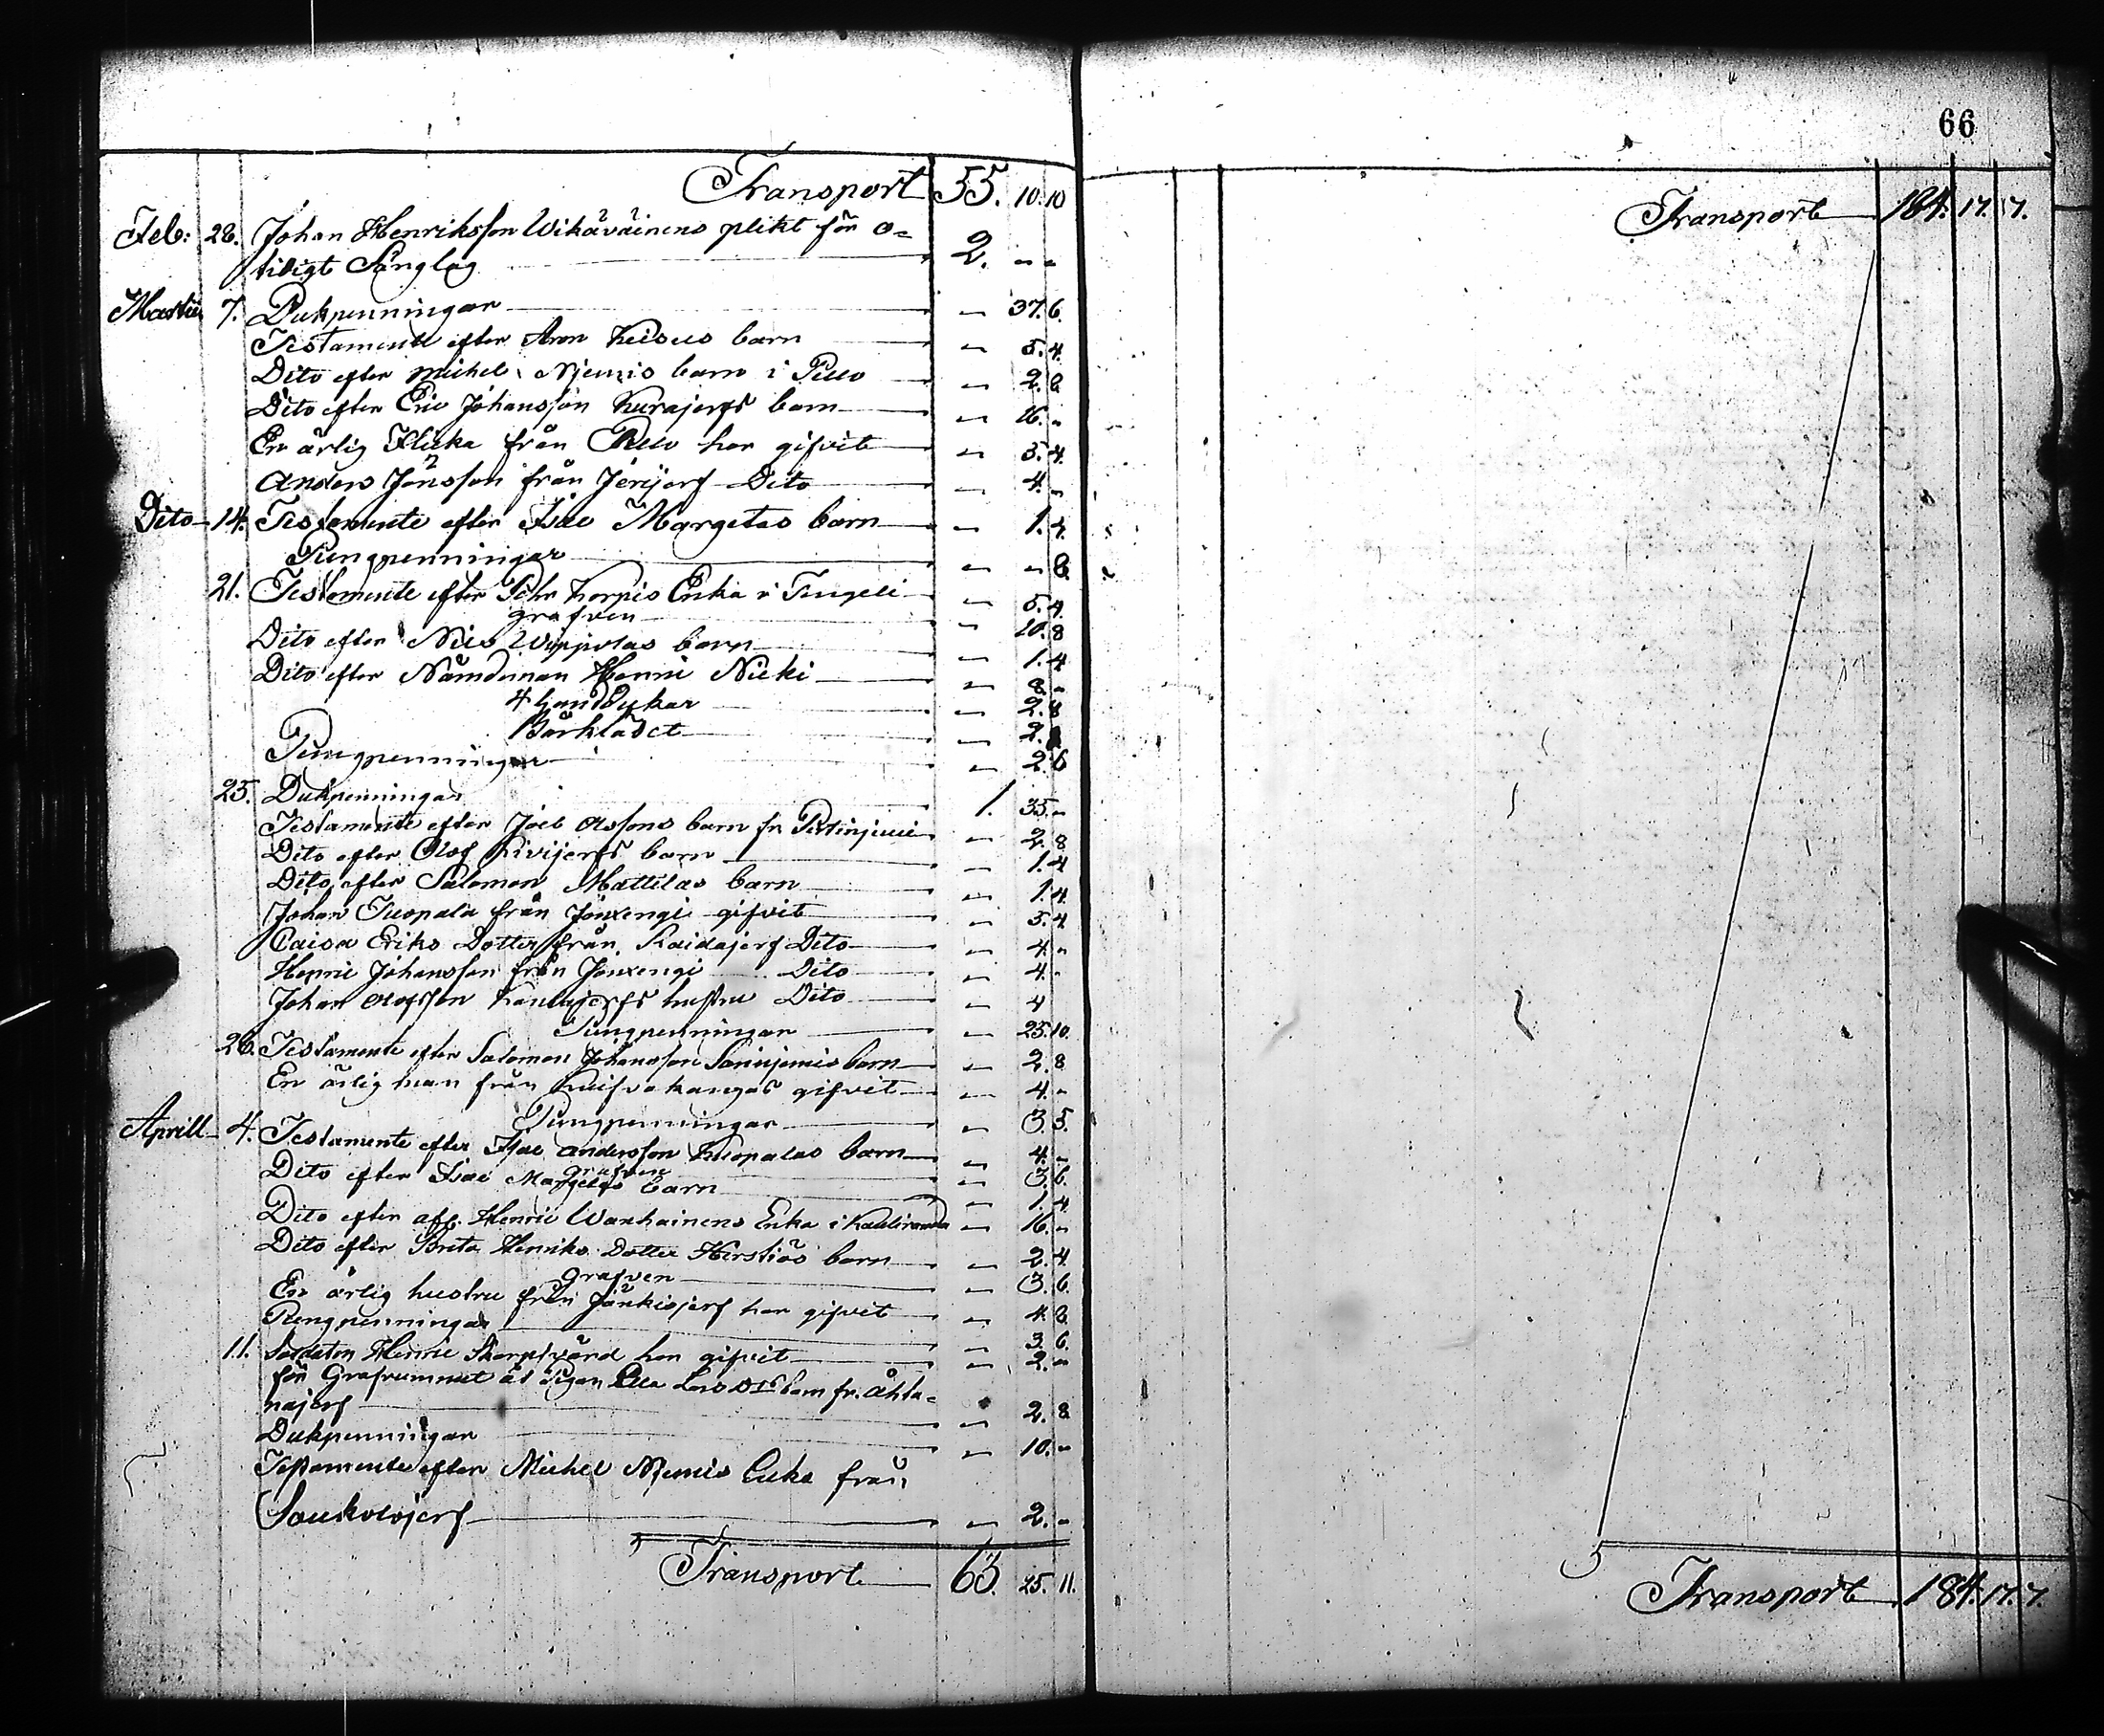 66
Transport 55. 10. 10
Feb: 28. Johan Henriksson Wikäväinens plikt för o=
tidigt Sänglag 2. " "
Martii 7. Dukpenningar " 37. 6.
Testamente efter Aron barn " 5. 4.
Dito efter Michel Niemis barn i Pello " 2. 8
Dito efter Eric Johansson Kurajerfs barn " 16. "
En ärlig Flicka från Pello har gifvit " 5. 4.
Anders Jönsson från Jerijerf Dito " 4. "
Dito 14. Testamente efter Isac Margetas barn " 1. 4.
Pungpenningar " " 8.
21. Testamente efter Pehr Korpis Enka i Tengeli " 5. 4.
grafven " 10. 8
Dito efter Nils Wippolas barn " 1. 4
Dito efter Nämdeman Henric Nicki " 8. "
4 handdukar " 2. 8
Bårklädet " 2.
Pungpenningar " 2. 6
25. Dukpenningar 1. 35. "
Testamente efter Joel Olssons barn fr. " 2. 8
Dito efter Olof Kivijerfs barn " 1. 4
Dito efter Salomon Mattilas barn " 1. 4.
Johan Tuopala från Jouxengi gifvit " 5. 4
Caisa Eriks Dotter från Raidajerf Dito " 4. "
Henric Johansson från Jouxengi Dito " 4. "
Johan Olofsson hustru Dito " 4
Pungpenningar " 25. 10.
26. Testamente efter Salomon Johansson barn " 2. 8
En ärlig man från Kuifvakangas gifvit " 4. "
Pungpenningar " 3. 5.
Aprill 4. Testamente efter Isac Andersson Kuopalas barn " 4. "
grafven " 3. 6.
Dito efter Isac Margetas barn " 1. 4
Dito efter afl. Henric Wanhainens Enka i Kauliranda " 16. "
Dito efter Brita Henriks Dotter barn " 2. 4
grafven " 3. 6.
En ärlig hustru från Jänkisjerf har gifvit " 4. 8
Pungpenningar " 3. 6.
11. Soldaten Henric Skarpsvärd har gifvit " 2. "
för Grafrummet åt Pigan barn fr. Ahla=
najerf " 2. 8
Dukpenningar " 10. "
Testamente efter Michel Niemis Enka från
Soukolojerf " 2. "
Transport 63. 25. 11.
Transport 184. 17. 7.
Transport 184. 17. 7.